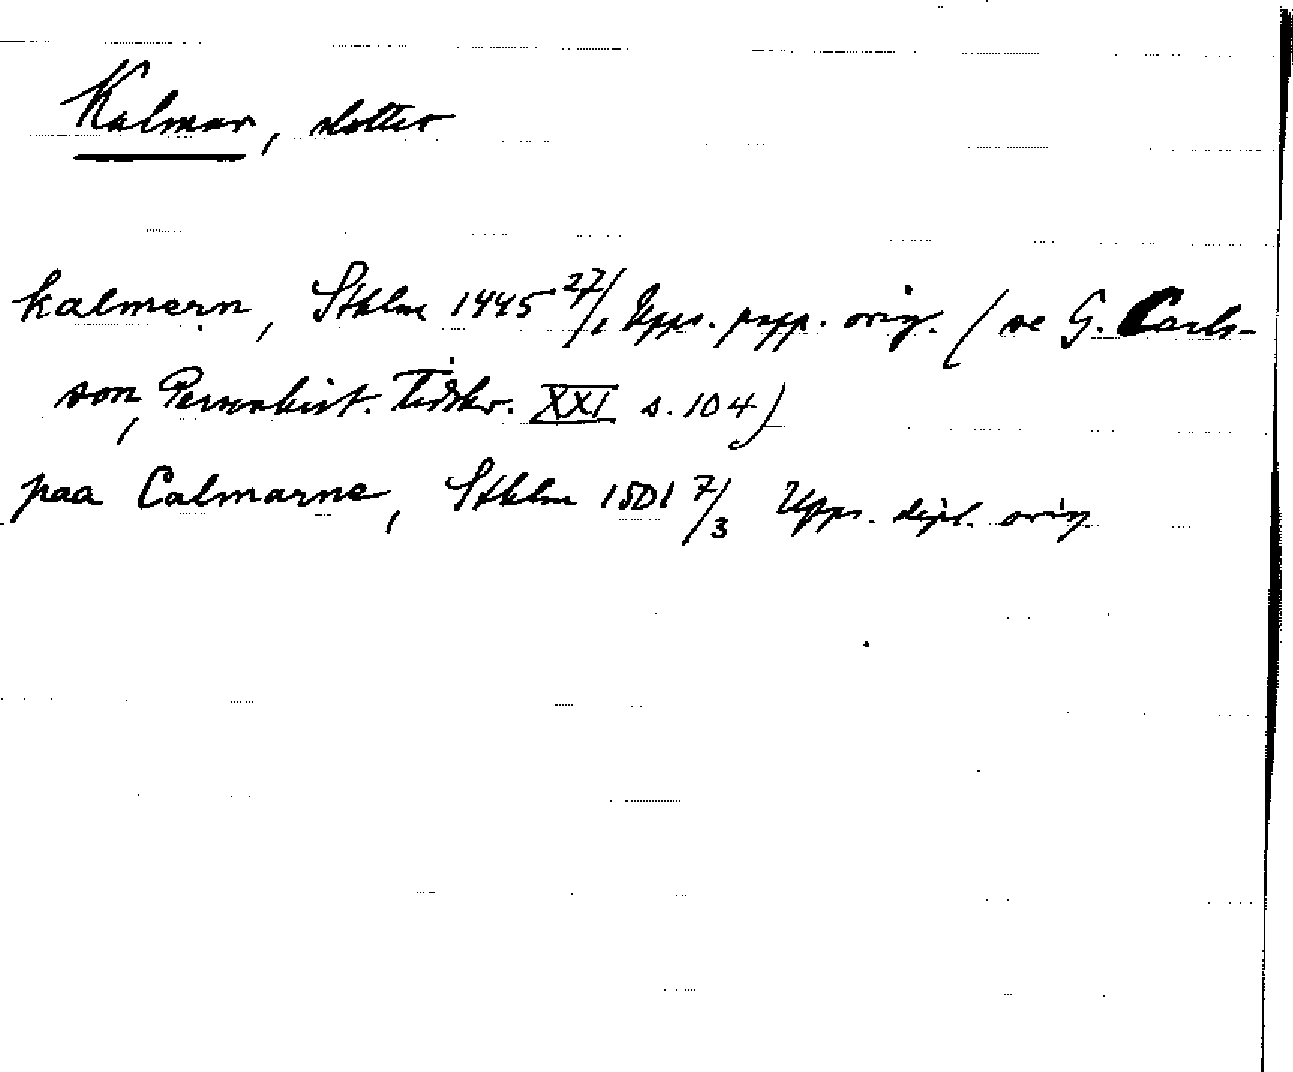 Kalmar, slottet
kalmern, Sthlm 1445 27/1 Upps. papp. orig. (se G. Carls-
son, Personhist. Tidskr. XXI s. 104)
paa Calmarne, Sthlm 1501 7/3 Upps. dipl. orig